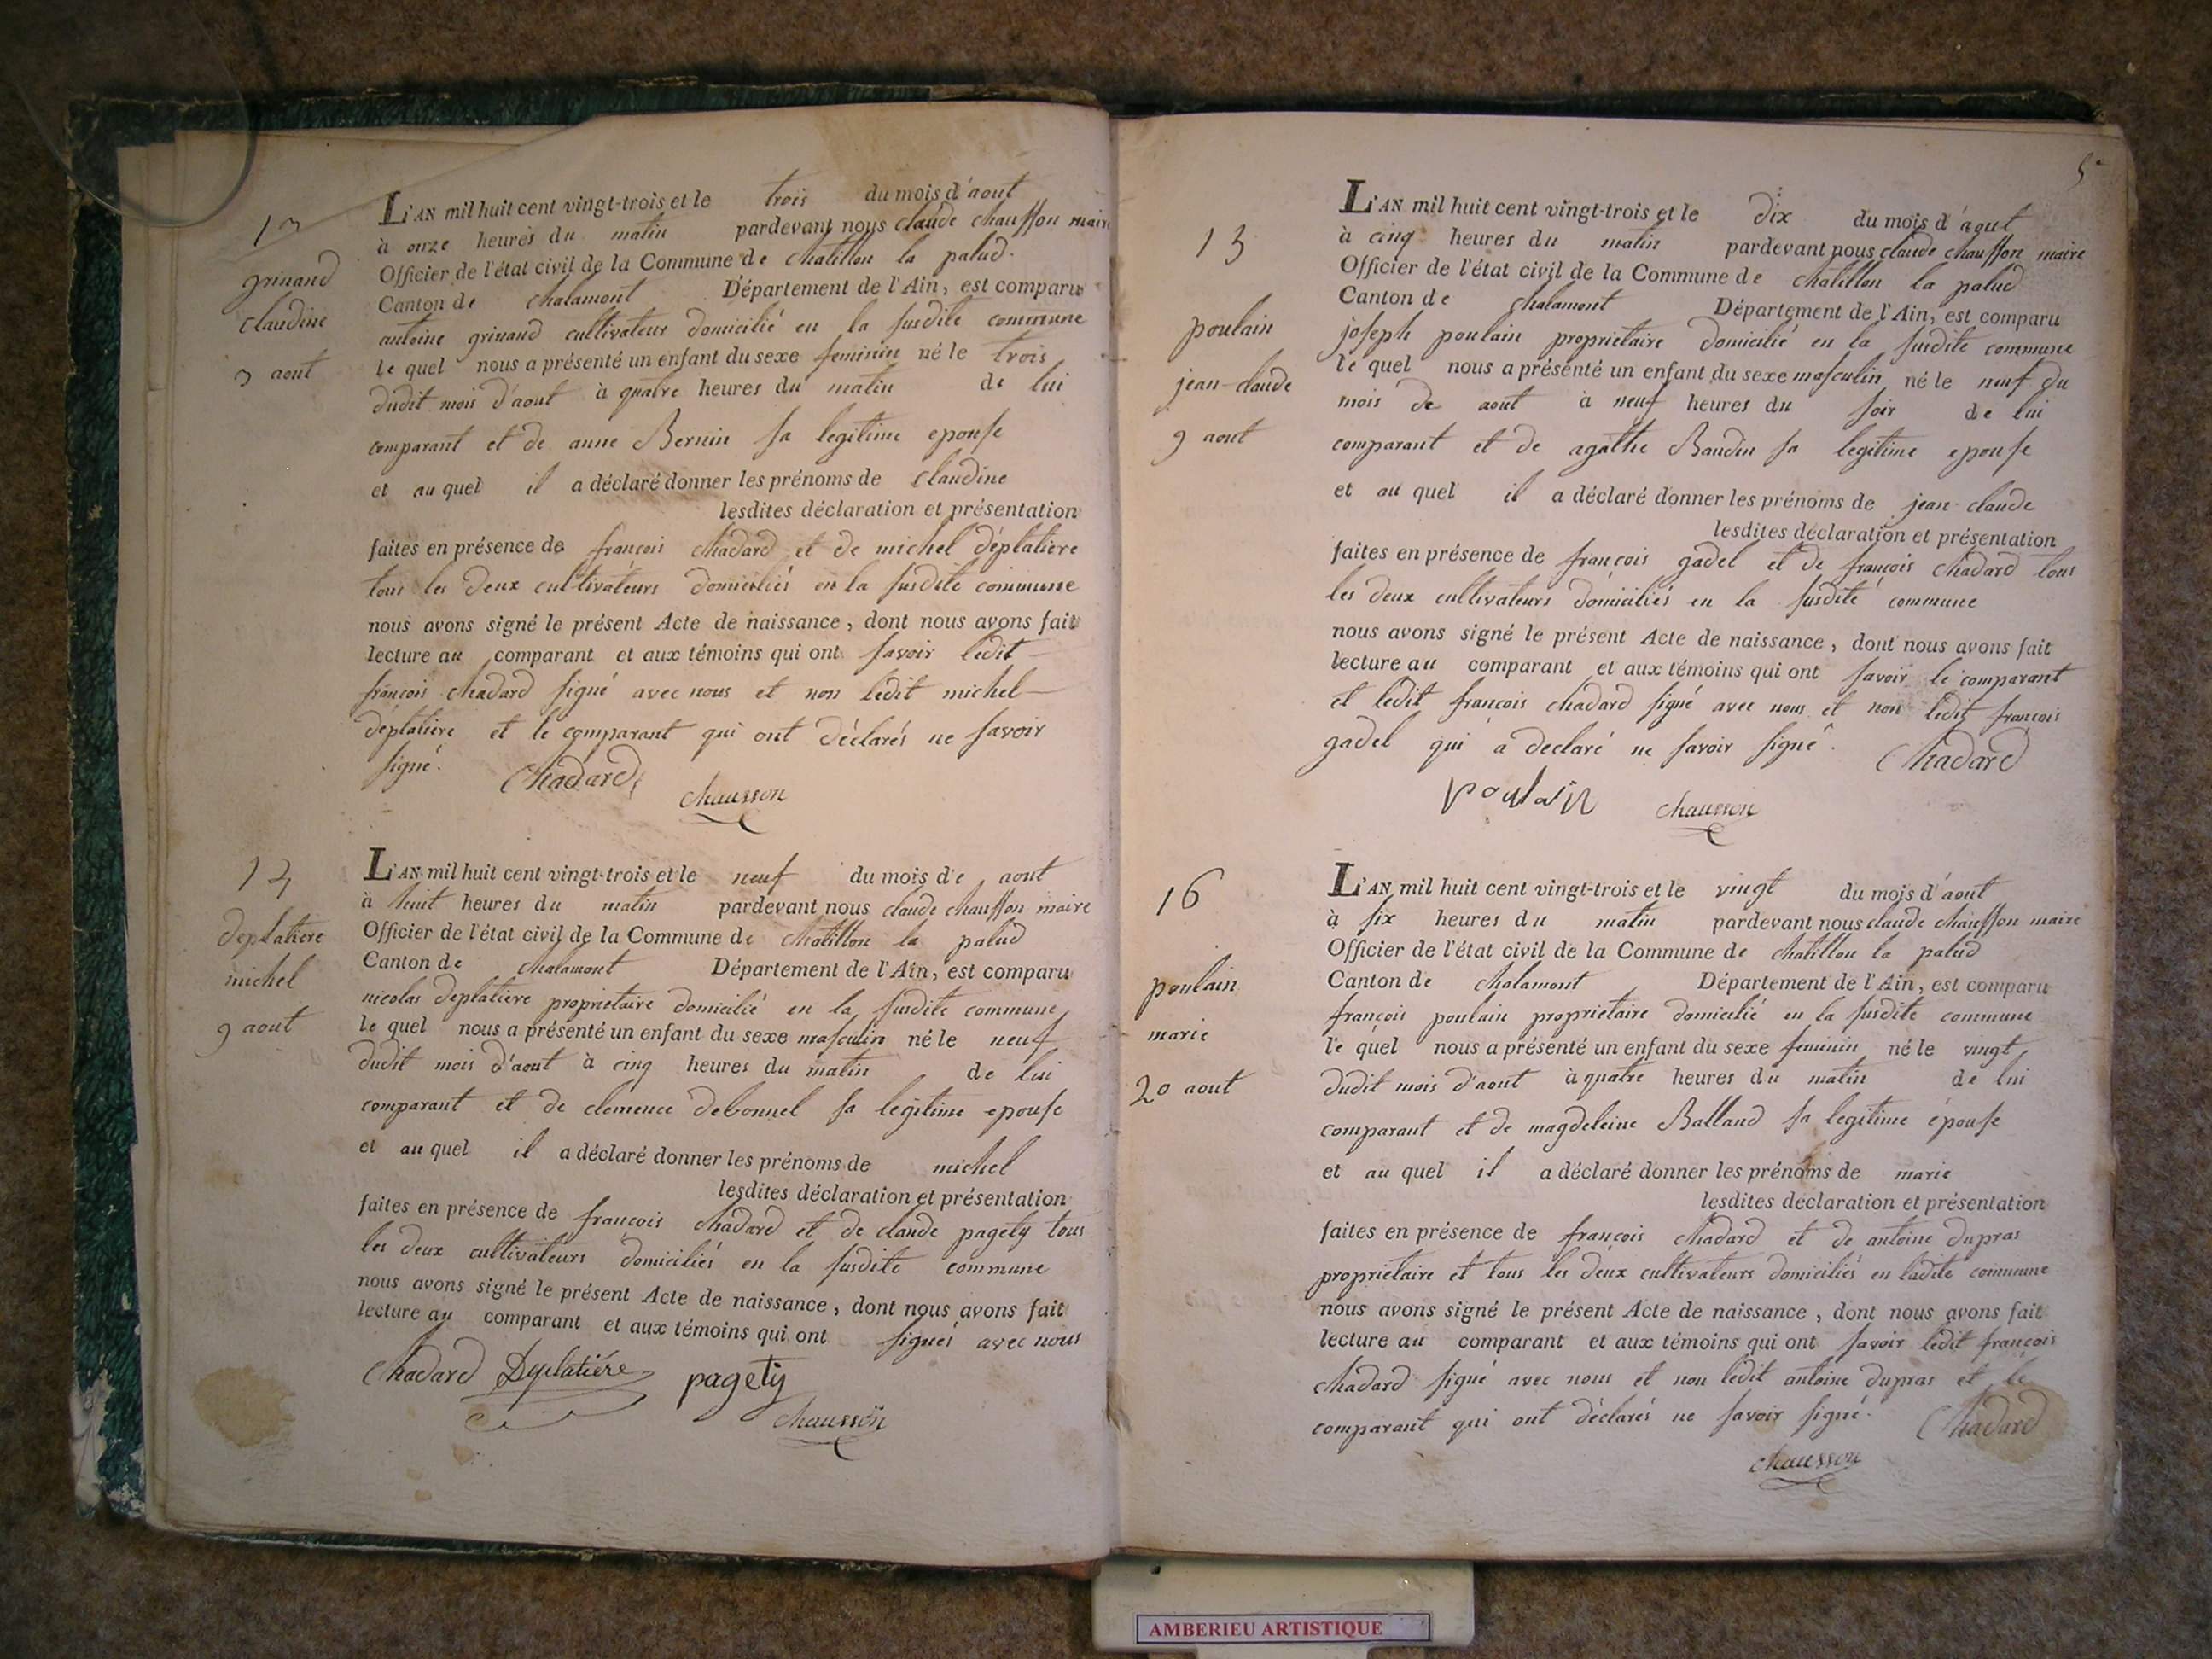 13
grinand
claudine
3 aout
L'AN mil huit cent vingt-trois et le trois du mois d'aout
à onze heures du matin pardevant nous claude chausson maire
Officier de l'état civil de la Commune de chatillon la palud.
Canton de chalamont Département de l'Ain, est comparu
antoine grinand cultivateur domicilié en la susdite commune
le quel nous a présenté un enfant du sexe feminin né le trois
dudit mois d'aout à quatre heures du matin de lui
comparant et de anne Bernin sa legitime epouse
et au quel il a déclaré donner les prénoms de claudine
lesdites déclaration et présentation
faites en présence de françois chadard et de michel déplatiere
tous les deux cultivateurs domiciliés en la susdite commune
nous avons signé le présent Acte de naissance, dont nous avons fait
lecture au comparant et aux témoins qui ont savoir ledit
françois chadard signé avec nous et non ledit michel
déplatiere et le comparant qui ont déclarés ne savoir
signé. Chadard
chausson
14
deplatiere
michel
9 aout
L'AN mil huit cent vingt-trois et le neuf du mois de aout
à huit heures du matin pardevant nous claude chausson maire
Officier de l'état civil de la Commune de chatillon la palud
Canton de chalamont Département de l'Ain, est comparu
nicolas deplatiere proprietaire domicilié en la susdite commune
le quel nous a présenté un enfant du sexe masculin né le neuf
dudit mois d'aout à cinq heures du matin de lui
comparant et de clemence debonnel sa legitime epouse
et au quel il a déclaré donner les prénoms de michel
lesdites déclaration et présentation
faites en présence de françois chadard et de claude pagety tous
les deux cultivateurs domiciliés en la susdite commune
nous avons signé le présent Acte de naissance, dont nous avons fait
lecture au comparant et aux témoins qui ont signés avec nous
Chadard Deplatiére pagety
chausson
5
15
poulain
jean-claude
9 aout
L'AN mil huit cent vingt-trois et le dix du mois d'aout
à cinq heures du matin pardevant nous claude chausson maire
Officier de l'état civil de la Commune de chatillon la palud
Canton de chalamont Département de l'Ain, est comparu
joseph poulain proprietaire domicilié en la susdite commune
le quel nous a présenté un enfant du sexe masculin né le neuf du
mois de aout à neuf heures du soir de lui
comparant et de agathe Baudin sa legitime epouse
et au quel il a déclaré donner les prénoms de jean claude
lesdites déclaration et présentation
faites en présence de françois gadel et de françois chadard tous
les deux cultivateurs domiciliés en la susdite commune
nous avons signé le présent Acte de naissance, dont nous avons fait
lecture au comparant et aux témoins qui ont savoir le comparant
et ledit françois chadard signé avec nous et non ledit françois
gadel qui a declaré ne savoir signé. Chadard
poulain chausson
16
poulain
marie
20 aout
L'AN mil huit cent vingt-trois et le vingt du mois d'aout
à six heures du matin pardevant nous claude chausson maire
Officier de l'état civil de la Commune de chatillon la palud
Canton de chalamont Département de l'Ain, est comparu
françois poulain proprietaire domicilié en la susdite commune
le quel nous a présenté un enfant du sexe feminin né le vingt
dudit mois d'aout à quatre heures du matin de lui
comparant et de magdeleine Balland sa legitime épouse
et au quel il a déclaré donner les prénoms de marie
lesdites déclaration et présentation
faites en présence de françois chadard et de antoine dupras
proprietaire et tous les deux cultivateurs domiciliés en ladite commune
nous avons signé le présent Acte de naissance, dont nous avons fait
lecture au comparant et aux témoins qui ont savoir ledit françois
chadard signé avec nous et non ledit antoine dupras et le
comparant qui ont déclarés ne savoir signé. Chadard
chausson
AMBERIEU ARTISTIQUE